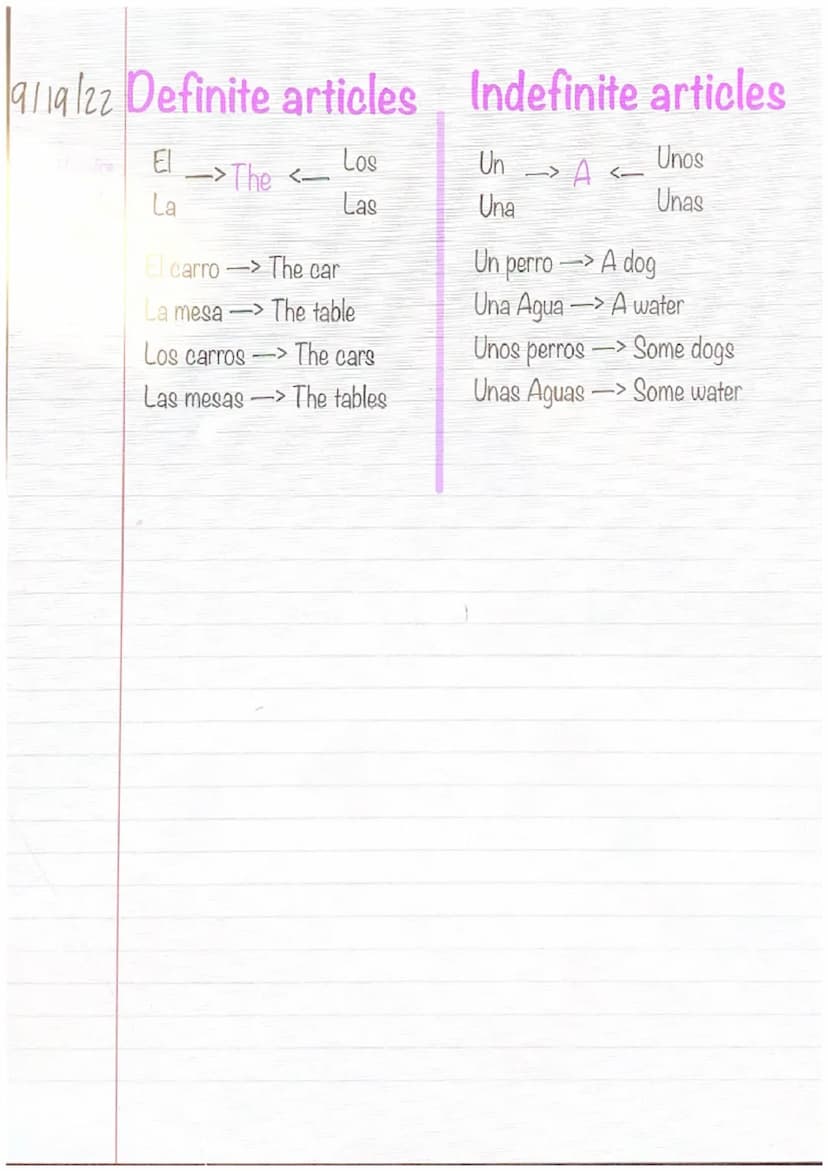 9/19/22
Definite articles
El
La
—>The <—
Los
Las
El carro —> The car
La mesa —> The table
Los carros —> The cars
Las mesas —> The tables
Indefinite articles
Un
Una
—> A <—
Unos
Unas
Un perro —> A dog
Una Agua —> A water
Unos perros —> Some dogs
Unas Aguas —> Some water